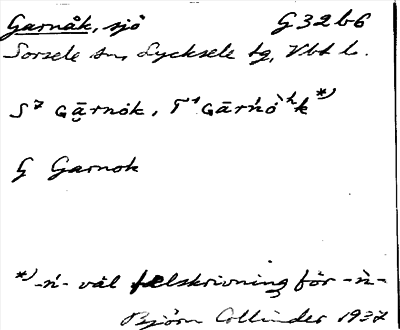 Garnåk, sjö G 32 b 6
Sorsele sn, Lycksele tg, Vbt l.
S⁷ Gā̮rnok, T¹ Gārńò ᵏk *)
G Garnok
*) -ń- väl felskrivning för -ǹ-
Björn Collinder 1937